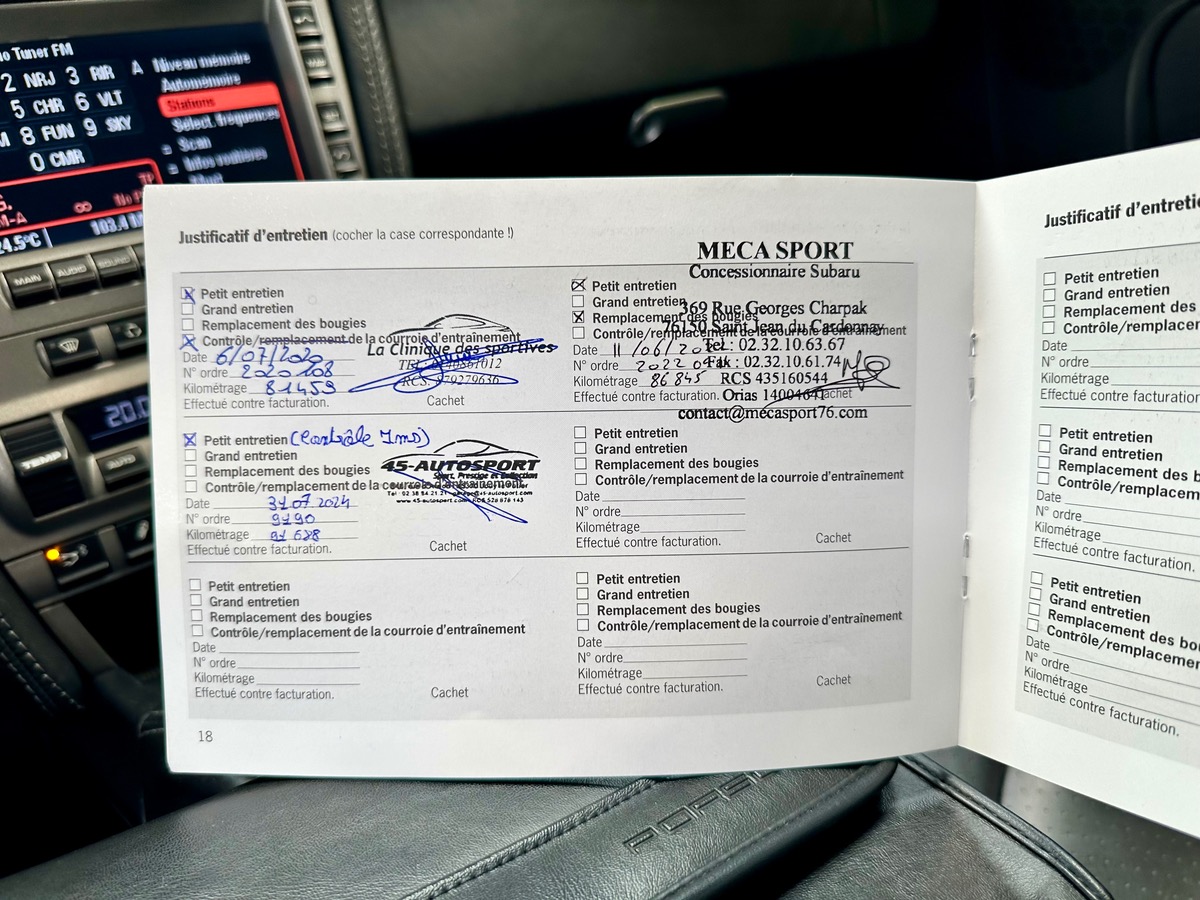 Tuner FM
2 NRJ 3 RIR A
5 CHR 6 VLT
8 FUN 9 SKY
0 CMR
Niveau mémoire
Automémoire
Stations
Sélect. fréquences
Scan
Infos routières
TP
24.5°C
103.4
MAIN
AUDIO
SOUND
20.0
TEMP
AUTO
Justificatif d'entretien (cocher la case correspondante !)
Petit entretien
Grand entretien
Remplacement des bougies
Contrôle/remplacement de la courroie d'entraînement
Date 6/07/2020
N° ordre 2020108
Kilométrage 81459
Effectué contre facturation.
Cachet
La Clinique des sportives
RCS.
MECA SPORT
Concessionnaire Subaru
369 Rue Georges Charpak
76150 Saint Jean du Cardonnay
Tel : 02.32.10.63.67
Fax : 02.32.10.61.74
RCS 435160544
Orias 14004641
contact@mecasport76.com
Petit entretien
Grand entretien
Remplacement des bougies
Contrôle/remplacement de la courroie d'entraînement
Date 11/06/202
N° ordre 2022
Kilométrage 86845
Effectué contre facturation.
Cachet
Petit entretien (Contrôle Ims)
Grand entretien
Remplacement des bougies
Contrôle/remplacement de la courroie d'entraînement
Date 31.07.2024
N° ordre 9190
Kilométrage 91688
Effectué contre facturation.
Cachet
45-AUTOSPORT
Sport Prestige et Collection
Tel : 02 38 54 21 21
www.45-autosport.com
Petit entretien
Grand entretien
Remplacement des bougies
Contrôle/remplacement de la courroie d'entraînement
Date
N° ordre
Kilométrage
Effectué contre facturation.
Cachet
Petit entretien
Grand entretien
Remplacement des bougies
Contrôle/remplacement de la courroie d'entraînement
Date
N° ordre
Kilométrage
Effectué contre facturation.
Cachet
Petit entretien
Grand entretien
Remplacement des bougies
Contrôle/remplacement de la courroie d'entraînement
Date
N° ordre
Kilométrage
Effectué contre facturation.
Cachet
18
Justificatif d'entretie
Petit entretien
Grand entretien
Remplacement des b
Contrôle/remplacer
Date
N° ordre
Kilométrage
Effectué contre facturation
Petit entretien
Grand entretien
Remplacement des b
Contrôle/remplacem
Date
N° ordre
Kilométrage
Effectué contre facturation.
Petit entretien
Grand entretien
Remplacement des bou
Contrôle/remplacemen
Date
N° ordre
Kilométrage
Effectué contre facturation.
PORSC